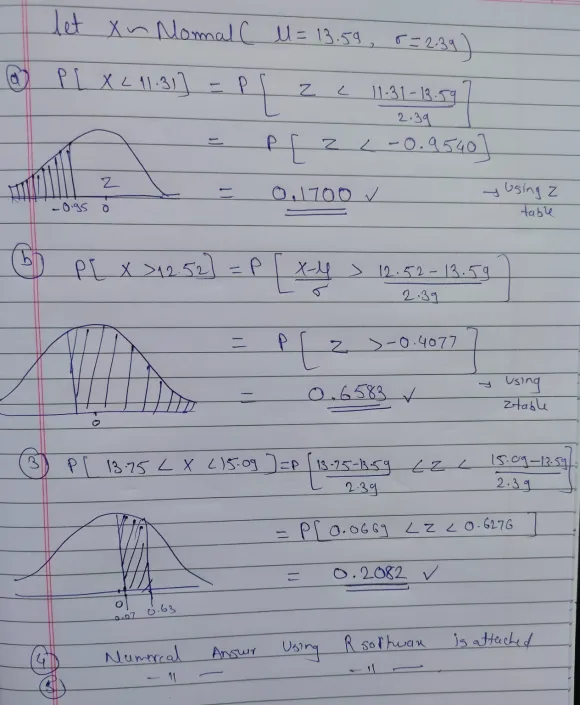 let X ~ Normal( μ = 13.59, σ = 2.39)
a) P[ X < 11.31] = P[ Z < (11.31-13.59)/2.39 ]
= P[ Z < -0.9540]
= 0.1700 ✓ → Using Z table
Z
-0.95 0
b) P[ X >12.52] = P[ (X-μ)/σ > (12.52-13.59)/2.39 ]
= P[ Z >-0.4077 ]
= 0.6583 ✓ → using z-table
0
3) P[ 13.75 < X < 15.09] = P[ (13.75-13.59)/2.39 < Z < (15.09-13.59)/2.39 ]
= P[ 0.0669 < Z < 0.6276 ]
= 0.2082 ✓
0
0.07 0.63
4) Numerical Answer Using R software is attached
5) -〃— -〃—